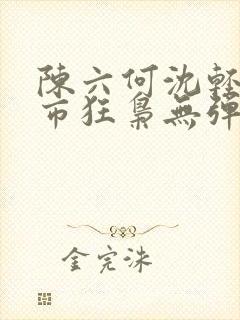 陳六何沈輕
市狂梟無彈
金完洙